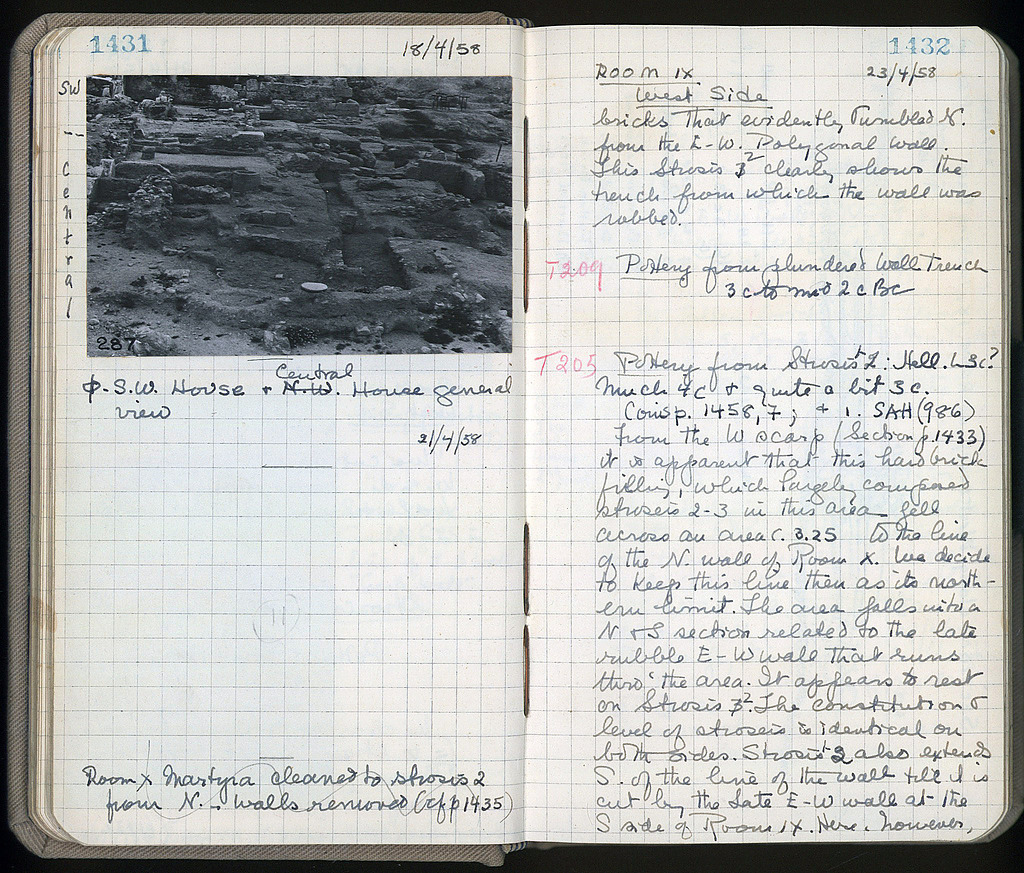 1431
18/4/58
SW -- Central
287
φ. S.W. House + N.W. Central House general
view
21/4/58
11
Room X Martyra cleaned to strosis 2
from N. walls removed (cf p 1435)
1432
ROOM IX
23/4/58
West Side
bricks that evidently tumbled
from the E-W. Polygonal wall.
This Strosis 3 2 clearly shows the
trench from which the wall was
robbed.
T209 Pottery from plundered wall trench
3c to mid 2c BC
T205 Pottery from Strosis 2: Hell. L3c?
Much 4c + quite a bit 3c.
Consp. 1458, 7; + 1. SAH (986)
from the W scarp (Section p. 1433)
it is apparent that this hard brick
filling, which largely composed
stroseis 2-3 in this area fell
across an area c. 3.25 to the line
of the N. wall of Room X. We decide
to keep this line then as its north-
ern limit. The area falls into a
N + S section related to the late
rubble E-W wall that runs
thro' the area. It appears to rest
on Strosis 3 2. The constitution &
level of stroseis is identical on
both sides. Strosis 2 also extends
S. of the line of the wall till it is
cut by the late E-W wall at the
S side of Room IX. Here, however,